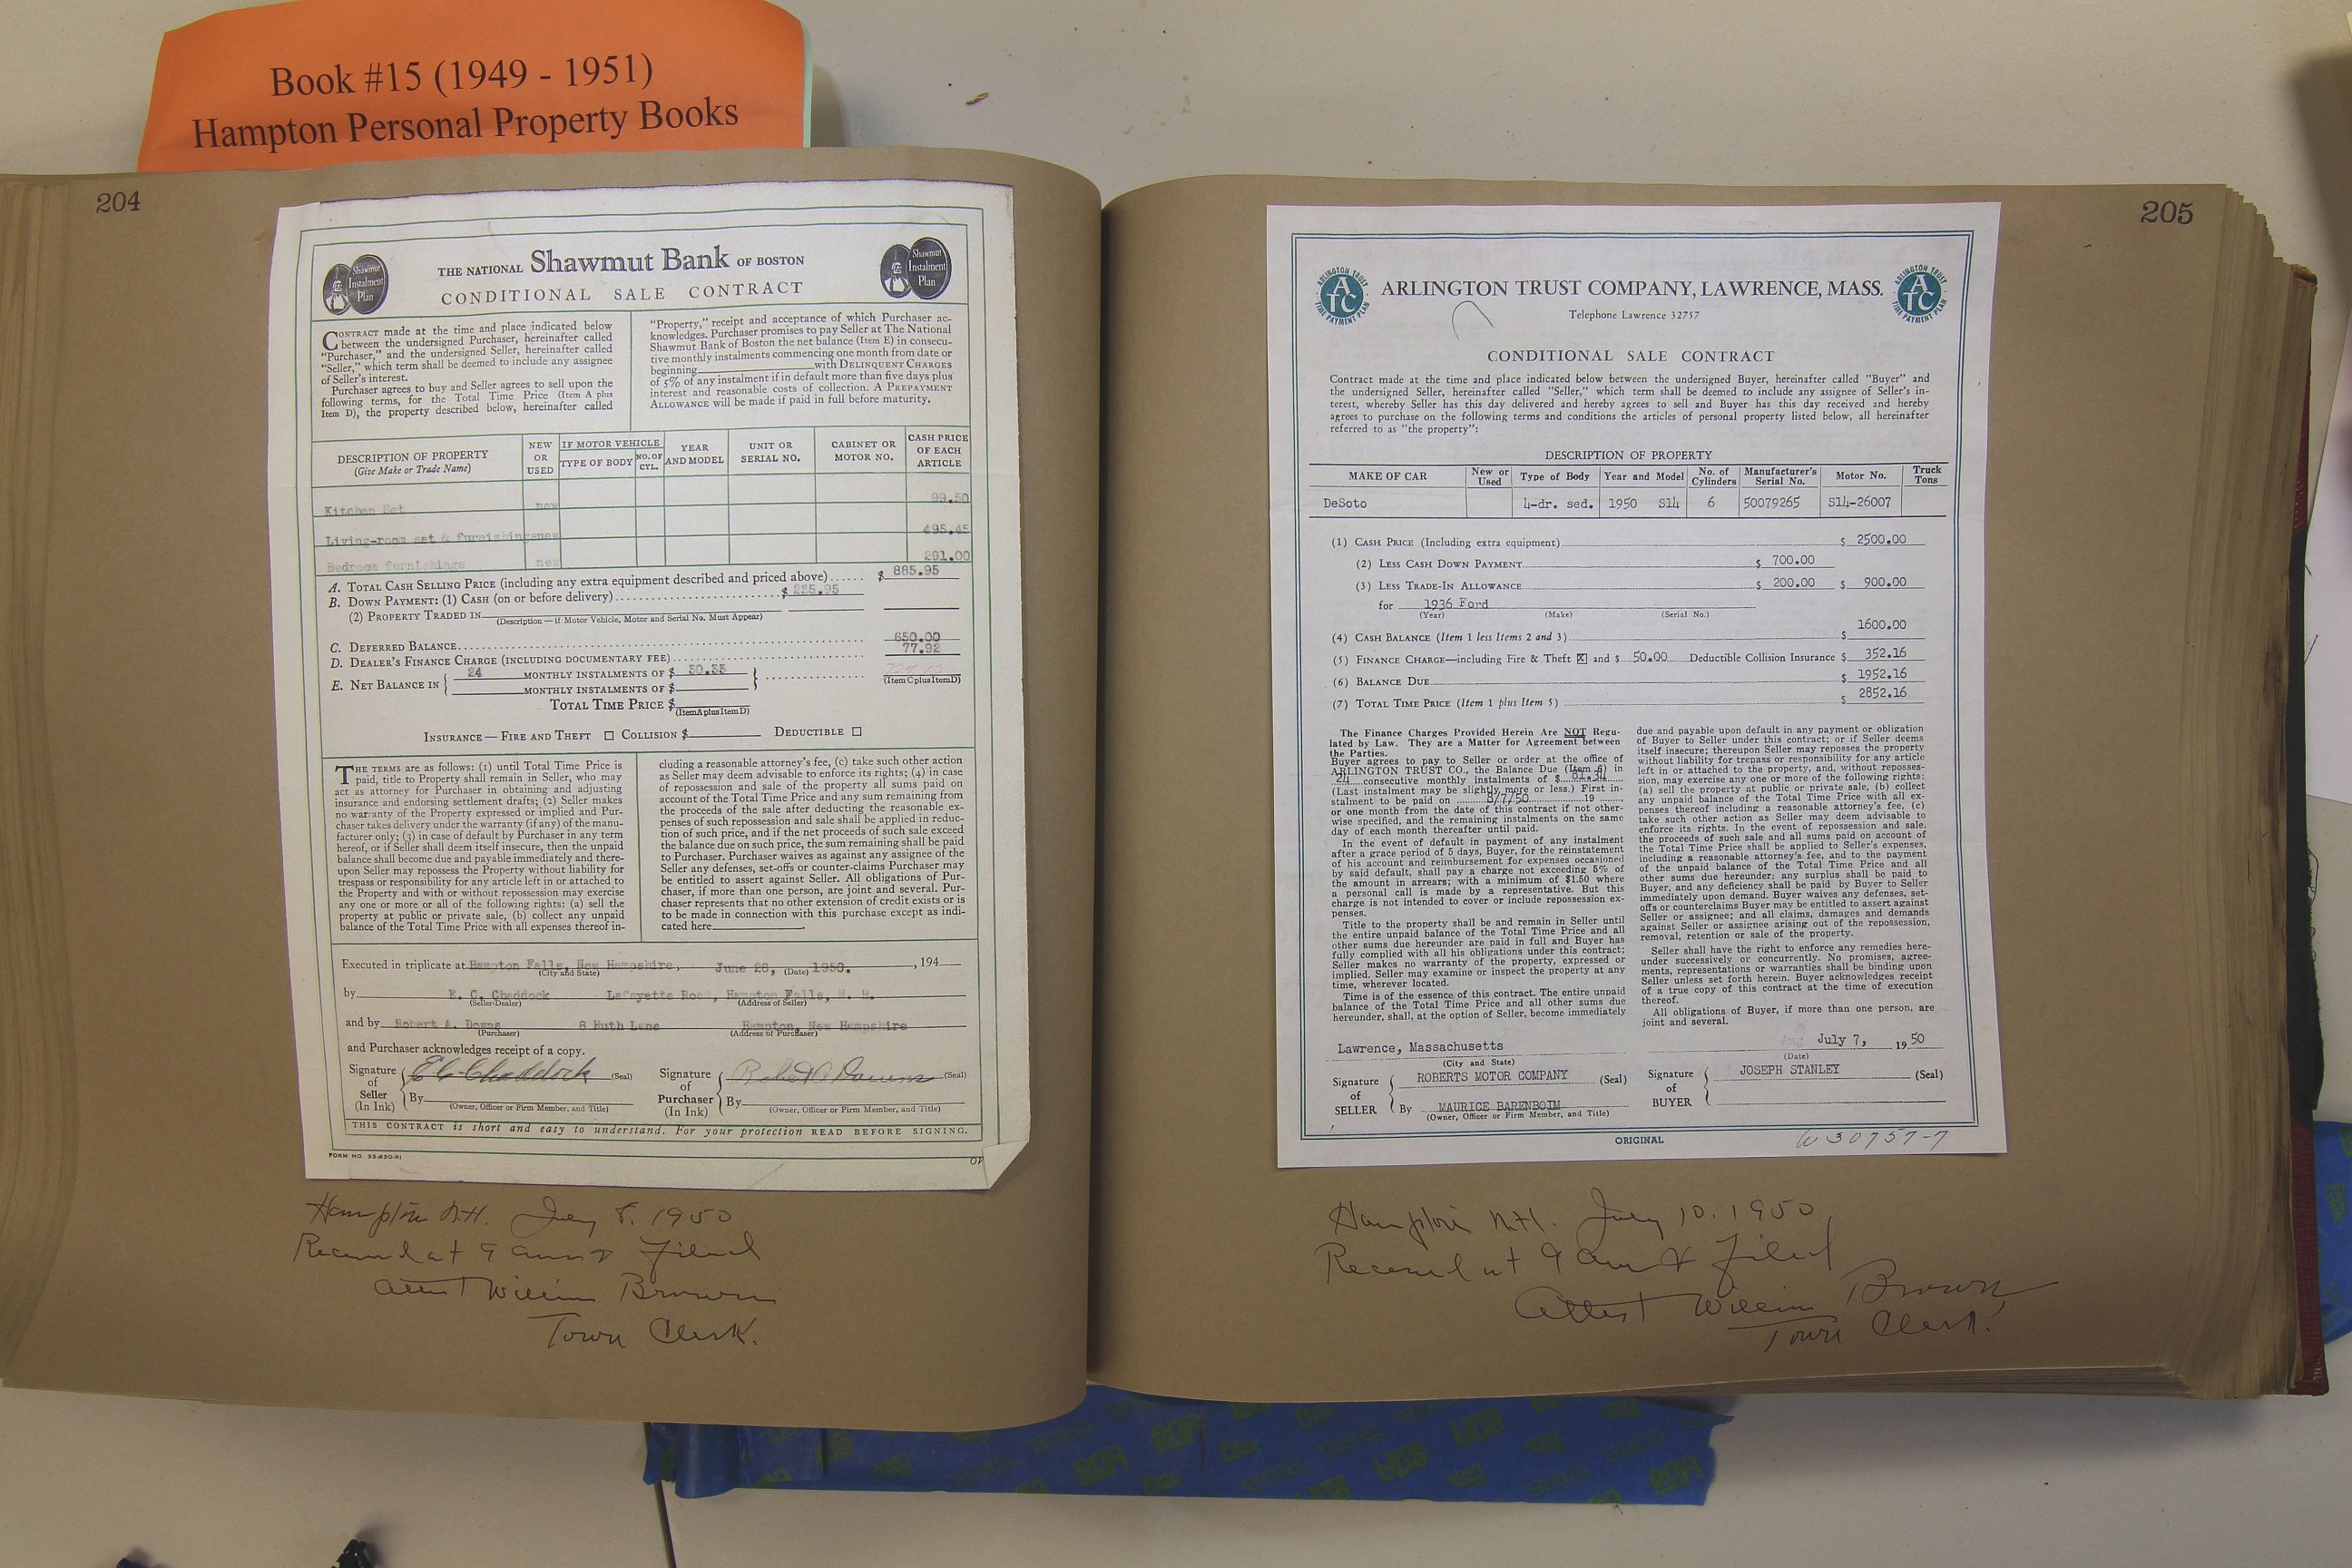 Book #15 (1949 - 1951)
Hampton Personal Property Books
204
Shawmut
Instalment
Plan
THE NATIONAL Shawmut Bank OF BOSTON
CONDITIONAL SALE CONTRACT
Shawmut
Instalment
Plan
CONTRACT made at the time and place indicated below
between the undersigned Purchaser, hereinafter called
"Purchaser," and the undersigned Seller, hereinafter called
"Seller," which term shall be deemed to include any assignee
of Seller's interest.
Purchaser agrees to buy and Seller agrees to sell upon the
following terms, for the Total Time Price (Item A plus
Item D), the property described below, hereinafter called
"Property," receipt and acceptance of which Purchaser ac-
knowledges. Purchaser promises to pay Seller at The National
Shawmut Bank of Boston the net balance (Item E) in consecu-
tive monthly instalments commencing one month from date or
beginning with DELINQUENT CHARGES
of 5% of any instalment if in default more than five days plus
interest and reasonable costs of collection. A PREPAYMENT
ALLOWANCE will be made if paid in full before maturity.
DESCRIPTION OF PROPERTY (Give Make or Trade Name) NEW OR USED IF MOTOR VEHICLE TYPE OF BODY NO. OF CYL. YEAR AND MODEL UNIT OR SERIAL NO. CABINET OR MOTOR NO. CASH PRICE OF EACH ARTICLE
Kitchen Set new 99.50
Living-room set & furnishings new 495.45
Bedroom furnishings new 291.00
A. TOTAL CASH SELLING PRICE (including any extra equipment described and priced above) ...... $ 885.95
B. DOWN PAYMENT: (1) CASH (on or before delivery) ........ $ 235.95
(2) PROPERTY TRADED IN
(Description—if Motor Vehicle, Motor and Serial No. Must Appear)
C. DEFERRED BALANCE........ 650.00
D. DEALER'S FINANCE CHARGE (INCLUDING DOCUMENTARY FEE)........ 77.92
E. NET BALANCE IN { 24 MONTHLY INSTALMENTS OF $ 30.33
MONTHLY INSTALMENTS OF $ } (Item C plus Item D)
TOTAL TIME PRICE $
(Item A plus Item D)
INSURANCE — FIRE AND THEFT ☐ COLLISION $ DEDUCTIBLE ☐
THE TERMS are as follows: (1) until Total Time Price is
paid, title to Property shall remain in Seller, who may
act as attorney for Purchaser in obtaining and adjusting
insurance and endorsing settlement drafts; (2) Seller makes
no warranty of the Property expressed or implied and Pur-
chaser takes delivery under the warranty (if any) of the manu-
facturer only; (3) in case of default by Purchaser in any term
hereof, or if Seller shall deem itself insecure, then the unpaid
balance shall become due and payable immediately and there-
upon Seller may repossess the Property without liability for
trespass or responsibility for any article left in or attached to
the Property and with or without repossession may exercise
any one or more or all of the following rights: (a) sell the
property at public or private sale, (b) collect any unpaid
balance of the Total Time Price with all expenses thereof in-
cluding a reasonable attorney's fee, (c) take such other action
as Seller may deem advisable to enforce its rights; (4) in case
of repossession and sale of the property all sums paid on
account of the Total Time Price and any sum remaining from
the proceeds of sale after deducting the reasonable ex-
penses of such repossession and sale shall be applied in reduc-
tion of such price, and if the net proceeds of such sale exceed
the balance due on such price, the sum remaining shall be paid
to Purchaser. Purchaser waives as against any assignee of the
Seller any defenses, set-offs or counter-claims Purchaser may
be entitled to assert against Seller. All obligations of Pur-
chaser, if more than one person, are joint and several. Pur-
chaser represents that no other extension of credit exists or is
to be made in connection with this purchase except as indi-
cated here.
Executed in triplicate at Hampton Falls, New Hampshire, June 28, 1950. , 194
(City and State) (Date)
by E. C. Chaddock Lafayette Road, Hampton Falls, N. H.
(Seller-Dealer) (Address of Seller)
and by Robert A. Downs 8 Ruth Lane Hampton, New Hampshire
(Purchaser) (Address of Purchaser)
and Purchaser acknowledges receipt of a copy.
Signature of Seller (In Ink) { E C Chaddock (Seal)
By
(Owner, Officer or Firm Member, and Title)
Signature of Purchaser (In Ink) { Robert A Downs (Seal)
By
(Owner, Officer or Firm Member, and Title)
THIS CONTRACT is short and easy to understand. For your protection READ BEFORE SIGNING.
FORM NO. 33-830-RI
Hampton N.H. July 8. 1950
Received at 9 am & Filed
Attest William Brown
Town Clerk.
205
ARLINGTON TRUST
ATC
TIME PAYMENT PLAN
ARLINGTON TRUST COMPANY, LAWRENCE, MASS.
Telephone Lawrence 32757
ARLINGTON TRUST
ATC
TIME PAYMENT PLAN
CONDITIONAL SALE CONTRACT
Contract made at the time and place indicated below between the undersigned Buyer, hereinafter called "Buyer" and
the undersigned Seller, hereinafter called "Seller," which term shall be deemed to include any assignee of Seller's in-
terest, whereby Seller has this day delivered and hereby agrees to sell and Buyer has this day received and hereby
agrees to purchase on the following terms and conditions the articles of personal property listed below, all hereinafter
referred to as "the property":
DESCRIPTION OF PROPERTY
MAKE OF CAR New or Used Type of Body Year and Model No. of Cylinders Manufacturer's Serial No. Motor No. Truck Tons
DeSoto 4-dr. sed. 1950 S14 6 50079265 S14-26007
(1) CASH PRICE (Including extra equipment) $ 2500.00
(2) LESS CASH DOWN PAYMENT $ 700.00
(3) LESS TRADE-IN ALLOWANCE $ 200.00 $ 900.00
for 1936 Ford
(Year) (Make) (Serial No.)
(4) CASH BALANCE (Item 1 less Items 2 and 3) $ 1600.00
(5) FINANCE CHARGE—including Fire & Theft ☒ and $ 50.00 Deductible Collision Insurance $ 352.16
(6) BALANCE DUE $ 1952.16
(7) TOTAL TIME PRICE (Item 1 plus Item 5) $ 2852.16
The Finance Charges Provided Herein Are NOT Regu-
lated by Law. They are a Matter for Agreement between
the Parties.
Buyer agrees to pay to Seller or order at the office of
ARLINGTON TRUST CO., the Balance Due (Item 6) in
24 consecutive monthly instalments of $ 81.34
(Last instalment may be slightly more or less.) First in-
stalment to be paid on 8/7/50 19
or one month from the date of this contract if not other-
wise specified, and the remaining instalments on the same
day of each month thereafter until paid.
In the event of default in payment of any instalment
after a grace period of 5 days, Buyer, for the reinstatement
of his account and reimbursement for expenses occasioned
by said default, shall pay a charge not exceeding 5% of
the amount in arrears; with a minimum of $1.50 where
a personal call is made by a representative. But this
charge is not intended to cover or include repossession ex-
penses.
Title to the property shall be and remain in Seller until
the entire unpaid balance of the Total Time Price and all
other sums due hereunder are paid in full and Buyer has
fully complied with all his obligations under this contract;
Seller makes no warranty of the property, expressed or
implied. Seller may examine or inspect the property at any
time, wherever located.
Time is of the essence of this contract. The entire unpaid
balance of the Total Time Price and all other sums due
hereunder, shall, at the option of Seller, become immediately
due and payable upon default in any payment or obligation
of Buyer to Seller under this contract; or if Seller deems
itself insecure; thereupon Seller may reposses the property
without liability for trespass or responsibility for any article
left in or attached to the property, and, without reposses-
sion, may exercise any one or more of the following rights:
(a) sell the property at public or private sale, (b) collect
any unpaid balance of the Total Time Price with all ex-
penses thereof including a reasonable attorney's fee, (c)
take such other action as Seller may deem advisable to
enforce its rights. In the event of repossession and sale,
the proceeds of such sale and all sums paid on account of
the Total Time Price shall be applied to Seller's expenses,
including a reasonable attorney's fee, and to the payment
of the unpaid balance of the Total Time Price and all
other sums due hereunder; any surplus shall be paid to
Buyer, and any deficiency shall be paid by Buyer to Seller
immediately upon demand. Buyer waives any defenses, set-
offs or counterclaims Buyer may be entitled to assert against
Seller or assignee; and all claims, damages and demands
against Seller or assignee arising out of the repossession,
removal, retention or sale of the property.
Seller shall have the right to enforce any remedies here-
under successively or concurrently. No promises, agree-
ments, representations or warranties shall be binding upon
Seller unless set forth herein. Buyer acknowledges receipt
of a true copy of this contract at the time of execution
thereof.
All obligations of Buyer, if more than one person, are
joint and several.
Lawrence, Massachusetts July 7, 19 50
(City and State) (Date)
Signature of SELLER { ROBERTS MOTOR COMPANY (Seal)
By MAURICE BARENBOIM
(Owner, Officer or Firm Member, and Title)
Signature of BUYER { JOSEPH STANLEY (Seal)
ORIGINAL
W30757-7
Hampton N.H. July 10. 1950
Received at 9 am & Filed
Attest William Brown
Town Clerk.